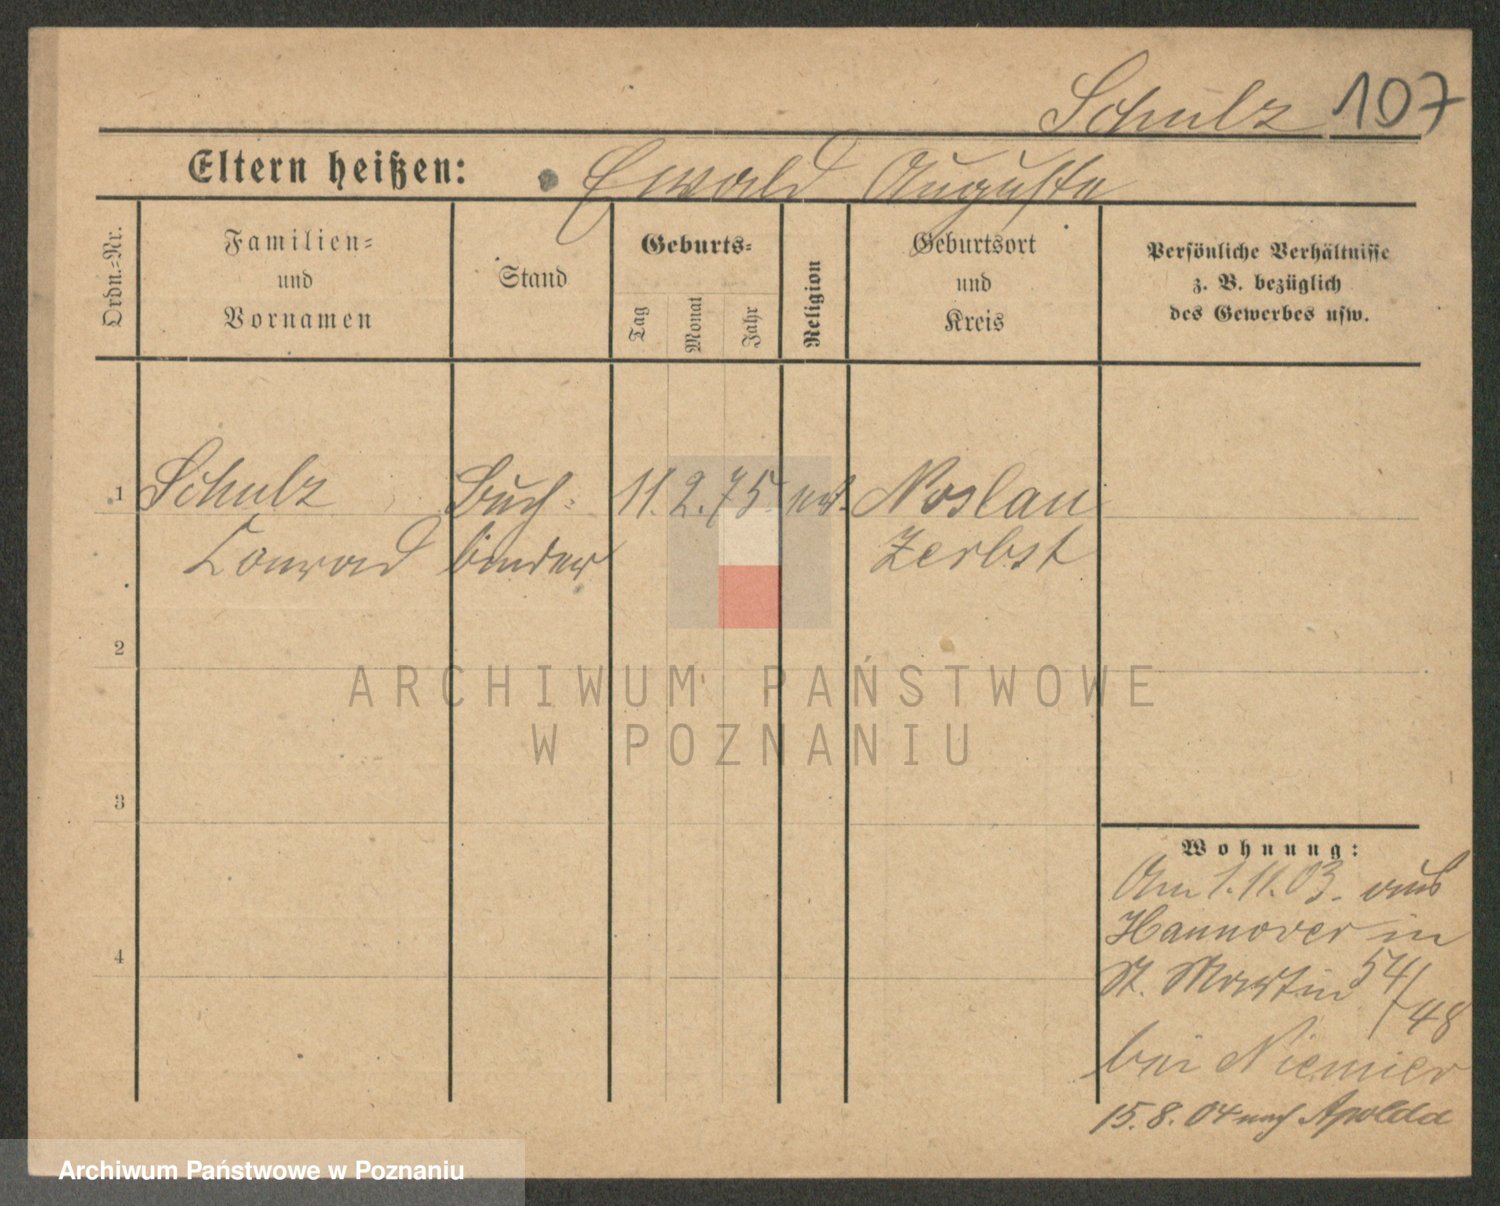 Schulz 107
Eltern heißen: Ewald Auguste
Ordn.=Nr.
Familien=
und
Vornamen
Stand
Geburts=
Tag
Monat
Jahr
Religion
Geburtsort
und
Kreis
Persönliche Verhältnisse
z. B. bezüglich
des Gewerbes usw.
1 Schulz Buch= 11. 2. 75. Noslau
Conrad binder Zerbst
2
ARCHIWUM PAŃSTWOWE
W POZNANIU
3
Wohnung:
Am 1. 11. 03. aus
Hannover in
4
St. Martin 54/
48
bei Niemier
15. 8. 04 nach Apolda
Archiwum Państwowe w Poznaniu